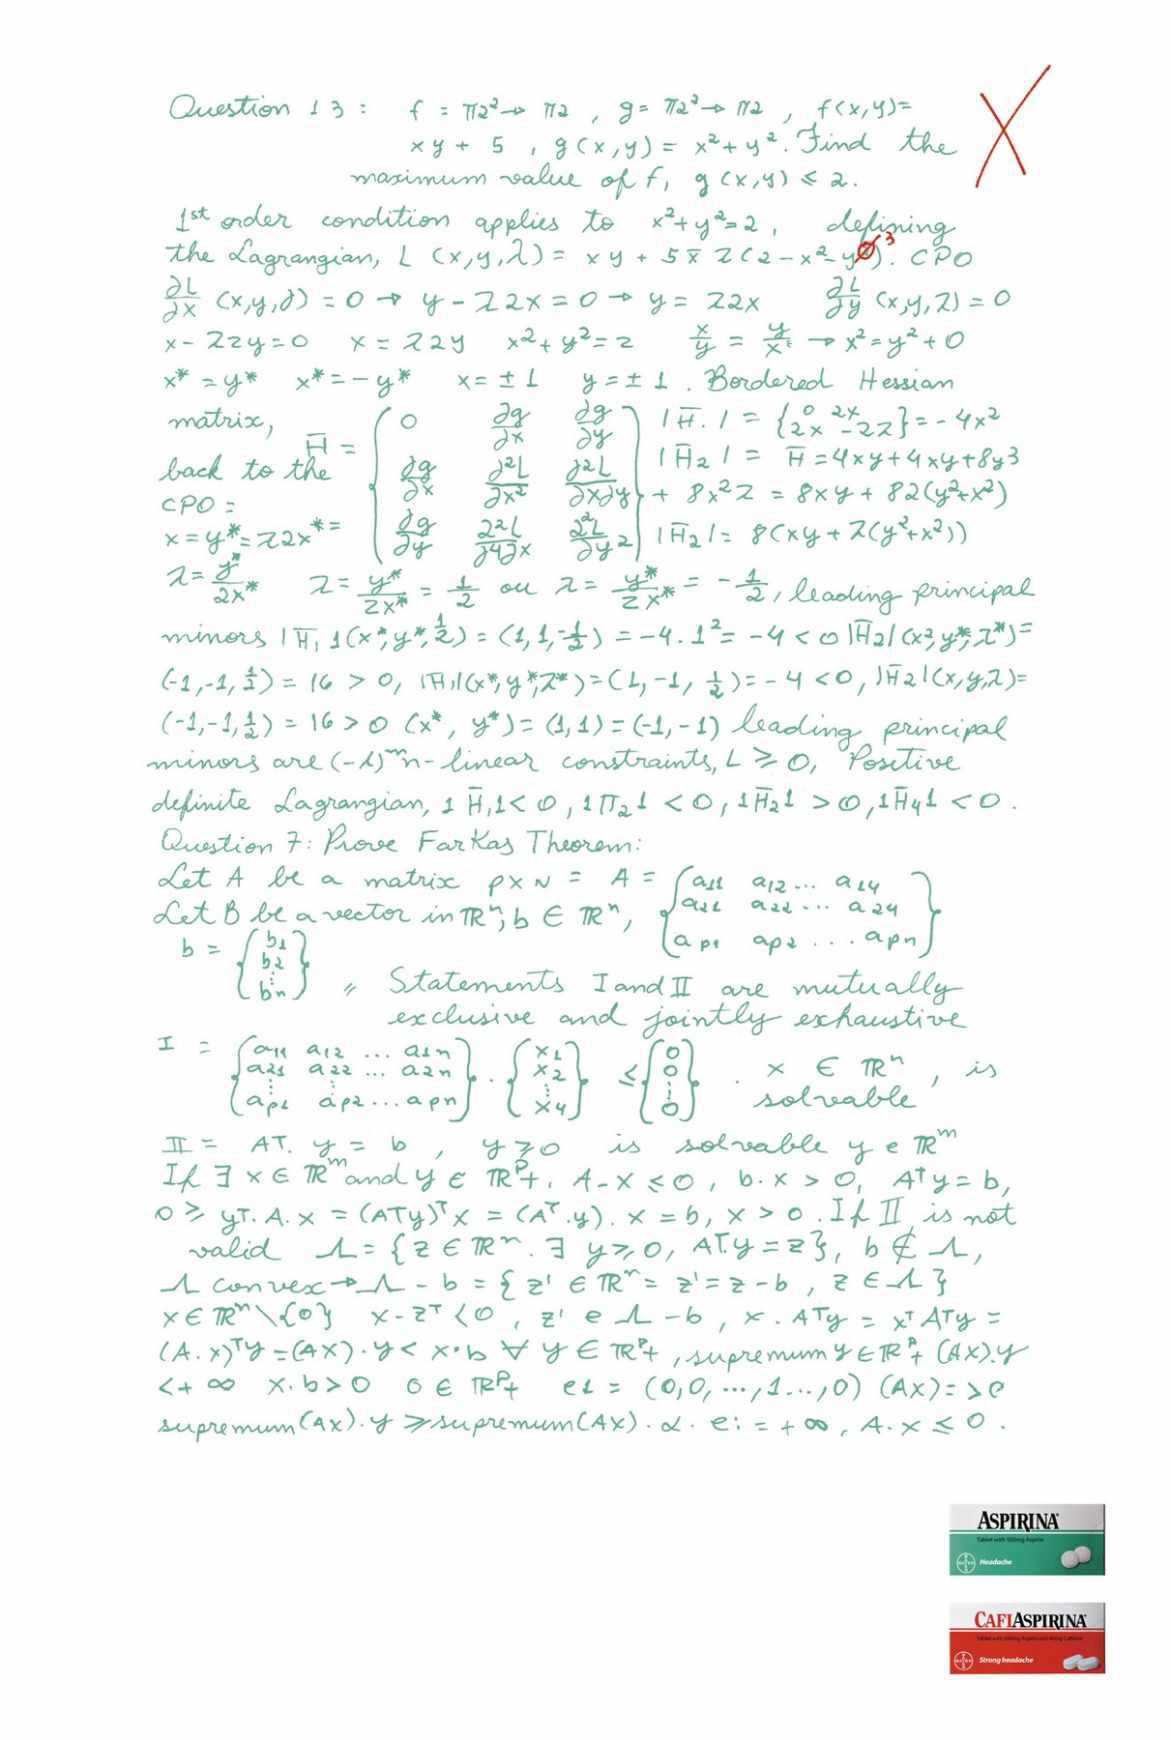 Question 13: f = π2² → π2 , g = π2² → π2 , f(x,y)=
xy + 5 , g(x,y) = x² + y². Find the
maximum value of f, g(x,y) ≤ 2.
1st order condition applies to x²+y²=2, defining
the Lagrangian, L (x,y,λ) = xy + 5 x̄ 2(2-x²-y 3). CPO
∂L/∂x (x,y,∂) = 0 → y - 22x = 0 → y = 22x ∂L/∂y (x,y,2) = 0
x - 22y = 0 x = 22y x²+y²=2 x/y = y/x → x²=y²+0
x* = y* x* = -y* x = ±1 y = ±1 . Bordered Hessian
matrix, H̄ = { 0 ∂g/∂x ∂g/∂y } |H̄.| = {0 2x 2x -22} = -4x²
back to the ∂g/∂x ∂²L/∂x² ∂²L/∂x∂y |H̄2| = H̄ = 4xy+4xy+8y3
CPO = + 8x²2 = 8xy + 82(y²+x²)
x=y*=22x*= ∂g/∂y ∂²L/∂y∂x ∂²L/∂y2 |H̄2| = 8(xy+2(y²+x²))
λ = y*/2x* λ = y*/2x* = 1/2 ou λ = y*/2x* = -1/2, leading principal
minors |H̄,1(x*,y*,1/2) = (1,1,-1/2) = -4.1² = -4 < 0 |H̄2|(x²,y*,2*)=
(-1,-1,1/2) = 16 > 0, |H̄1|(x*,y*,2*)=(1,-1,1/2) = -4 <0, |H̄2|(x,y,λ)=
(-1,-1,1/2) = 16 > 0 (x*, y*) = (1,1) = (-1,-1) leading principal
minors are (-1)ᵐn-linear constraints, L ≥ 0, Positive
definite Lagrangian, 1H̄,1< 0, 1Π21 < 0, 1H̄21 > 0, 1H̄41 < 0.
Question 7: Prove Farkas Theorem:
Let A be a matrix p x N = A = { a11 a12 ... a14
Let B be a vector in ℝⁿ; b ∈ ℝⁿ, a21 a22 ... a24
b = { b1 b2 ⋮ bn } ap1 ap2 ... apn }
〃 Statements I and II are mutually
exclusive and jointly exhaustive
I = { a11 a12 ... a1n } . { x1 } ≤ { 0 } . x ∈ ℝⁿ, is
a21 a22 ... a2n x2 0 solvable
ap1 ap2 ... apn x4 0
II = AT. y = b , y ≥ 0 is solvable y e ℝᵐ
If ∃ x ∈ ℝᵐ and y ∈ ℝᴾ+, A-x ≤ 0, b.x > 0, Aᵀy = b,
0 ≥ yᵀ.A.x = (ATy)ᵀx = (Aᵀ.y). x = b, x > 0. If II is not
valid Λ = {z ∈ ℝⁿ. ∃ y ≥ 0, AT.y = z}, b ∉ Λ,
Λ convex → Λ - b = { z' ∈ ℝⁿ = z' = z - b , z ∈ Λ }
x ∈ ℝⁿ\{0} x - zᵀ < 0 , z' e Λ - b , x . ATy = xᵀATy =
(A.x)ᵀy = (Ax).y < x.b ∀ y ∈ ℝᴾ+, supremum y ∈ ℝᴾ+ (Ax).y
<+ ∞ x.b>0 0 ∈ ℝᴾ+ e1 = (0,0,...,1...,0) (Ax)= >0
supremum(Ax).y ≥ supremum(Ax).α.e: = +∞, A.x ≤ 0.
ASPIRINA
Tablet with 500mg Aspirin
BAYER Headache
CAFIASPIRINA
Tablet with 500mg Aspirin and 40mg Caffeine
BAYER Strong headache